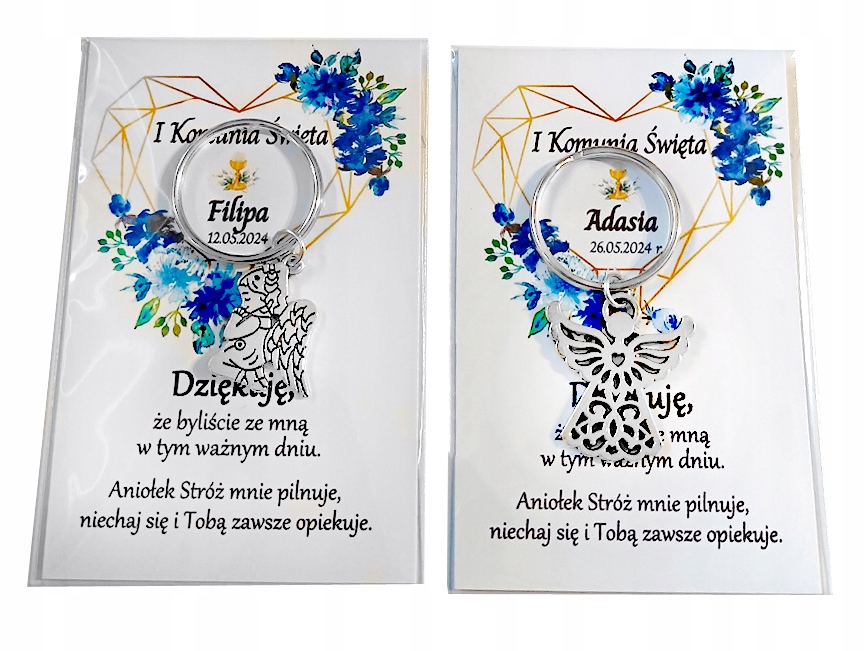 I Komunia Święta
Filipa
12.05.2024
Dziękuję,
że byliście ze mną
w tym ważnym dniu.
Aniołek Stróż mnie pilnuje,
niechaj się i Tobą zawsze opiekuje.
I Komunia Święta
Adasia
26.05.2024 r
mną
w tym ważnym dniu.
Aniołek Stróż mnie pilnuje,
niechaj się i Tobą zawsze opiekuje.